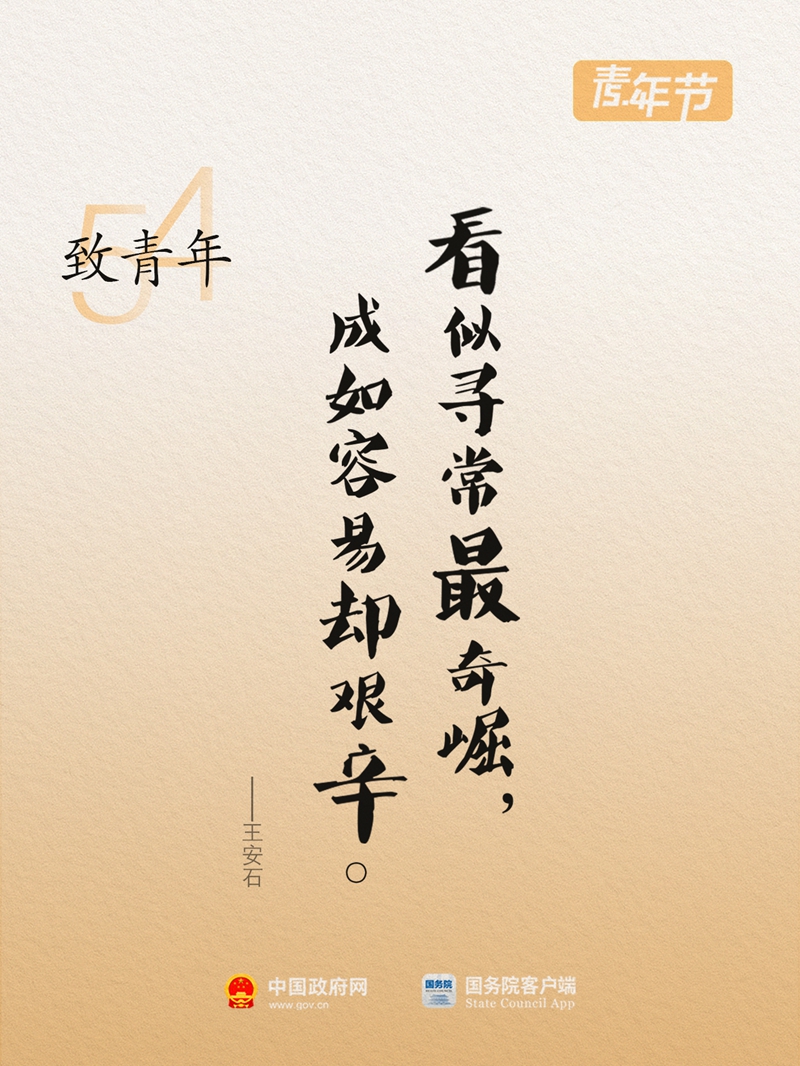 青年节
54
致青年
看似寻常最奇崛，
成如容易却艰辛。
——王安石
中国政府网
www.gov.cn
国务院
国务院客户端
State Council App